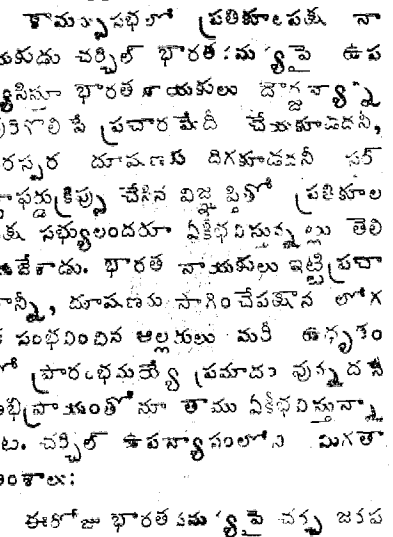 కామన్సుసభలో ప్రతికూలపక్ష నా
యకుడు చర్చిల్ భారతసమస్యపై ఉప
న్యసిస్తూ భారతనాయకులు దౌర్జన్యాన్ని
పురిగొలిపే ప్రచారమేదీ చేయకూడదనీ,
పరస్పర దూషణకు దిగకూడదనీ సర్
స్టాఫర్డుక్రిప్సు చేసిన విజ్ఞప్తితో ప్రతికూల
పక్ష సభ్యులందరూ ఏకీభవిస్తున్నట్లు తెలి
యజేశాడు. భారత నాయకులు ఇట్టిప్రచా
రాన్నీ, దూషణను సాగించేపక్షాన లోగ
డ సంభవించిన అల్లకులు మరీ ఉధృతం
తో ప్రారంభమయ్యే ప్రమాదం వున్నదనే
అభిప్రాయంతోనూ తాము ఏకీభవిస్తున్నా
ట. చర్చిల్ ఉపన్యాసంలోని మిగతా
అంశాలు:
ఈరోజు భారతసమస్యపై చర్చ జరప